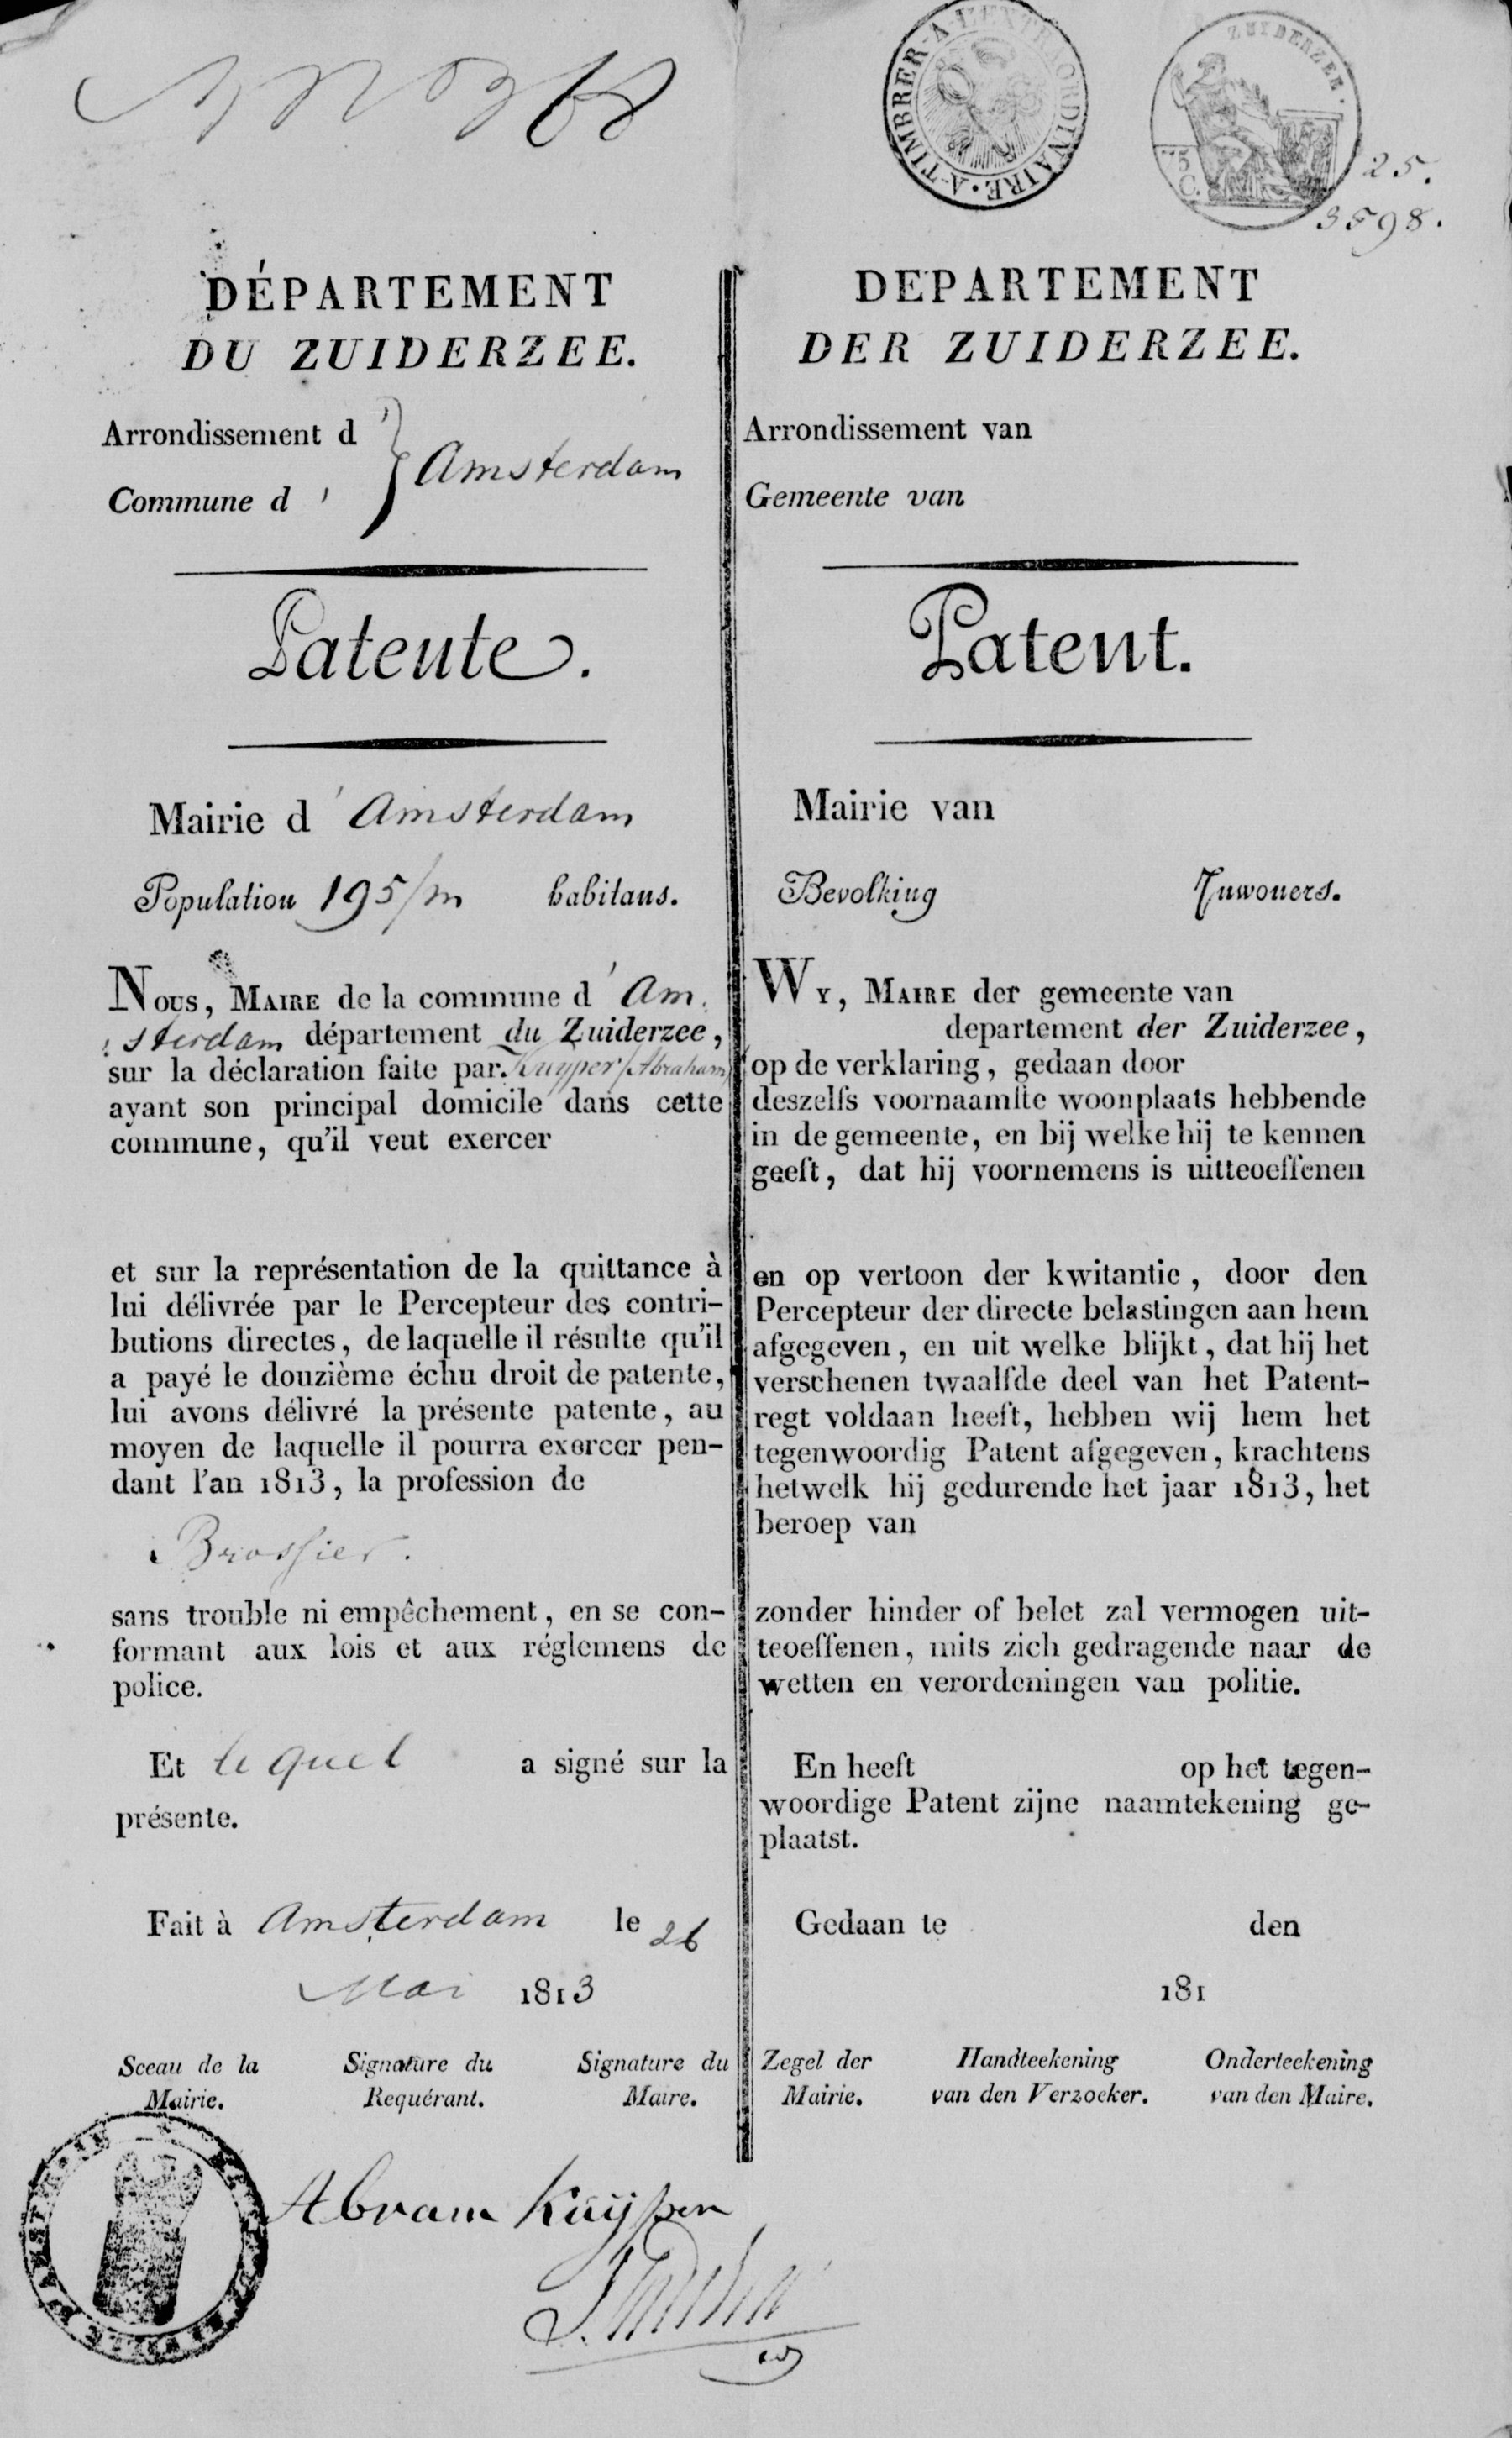 A·TIMBRER·A·L'EXTRAORDINAIRE·
ZUIDERZEE.
75
C.
25.
3598.
DÉPARTEMENT
DU ZUIDERZEE.
Arrondissement d'
Commune d'
Amsterdam
Patente.
Mairie d'Amsterdam
Population 195/m habitans.
Nous, Maire de la commune d'Am-
sterdam département du Zuiderzee,
sur la déclaration faite par Kuyper (Abraham)
ayant son principal domicile dans cette
commune, qu'il veut exercer
et sur la représentation de la quittance à
lui délivrée par le Percepteur des contri-
butions directes, de laquelle il résulte qu'il
a payé le douzième échu droit de patente,
lui avons délivré la présente patente, au
moyen de laquelle il pourra exercer pen-
dant l'an 1813, la profession de
Brossier.
sans trouble ni empêchement, en se con-
formant aux lois et aux réglemens de
police.
Et lequel a signé sur la
présente.
Fait à Amsterdam le 26
Mai 1813
Sceau de la
Mairie.
Signature du
Requérant.
Signature du
Maire.
Abram Kuijper
DEPARTEMENT
DER ZUIDERZEE.
Arrondissement van
Gemeente van
Patent.
Mairie van
Bevolking Inwoners.
Wy, Maire der gemeente van
departement der Zuiderzee,
op de verklaring, gedaan door
deszelfs voornaamste woonplaats hebbende
in de gemeente, en bij welke hij te kennen
geeft, dat hij voornemens is uitteoeffenen
en op vertoon der kwitantie, door den
Percepteur der directe belastingen aan hem
afgegeven, en uit welke blijkt, dat hij het
verschenen twaalfde deel van het Patent-
regt voldaan heeft, hebben wij hem het
tegenwoordig Patent afgegeven, krachtens
hetwelk hij gedurende het jaar 1813, het
beroep van
zonder hinder of belet zal vermogen uit-
teoeffenen, mits zich gedragende naar de
wetten en verordeningen van politie.
En heeft op het tegen-
woordige Patent zijne naamtekening ge-
plaatst.
Gedaan te den
181
Zegel der
Mairie.
Handteekening
van den Verzoeker.
Onderteekening
van den Maire.